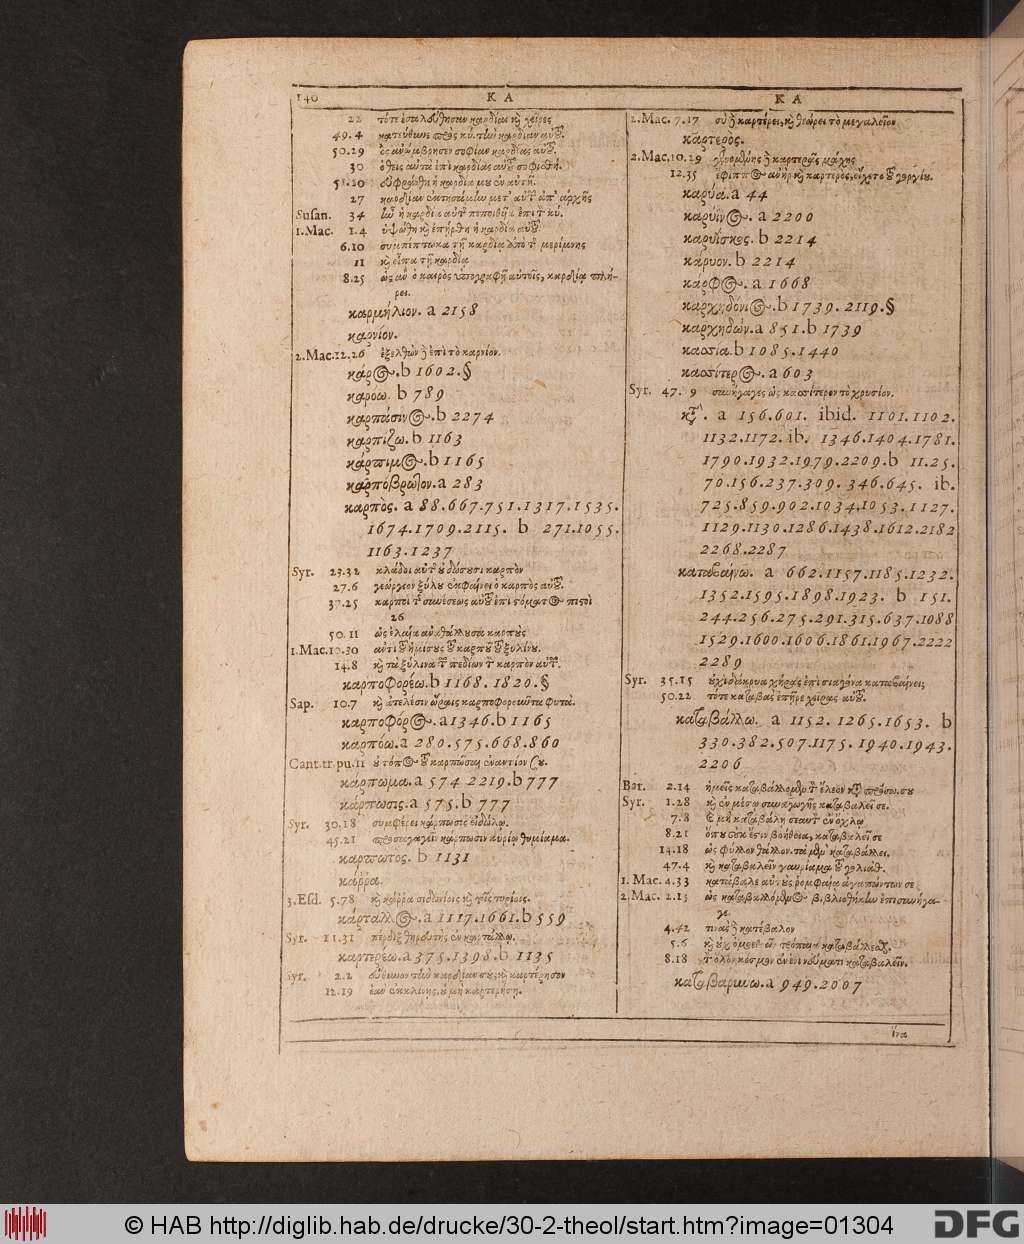 140 K A K A
22 τότε
49.4 κατεύθυνε πρὸς κύ. τὼ καρδίαν αὐτοῦ.
50.29 ὃς ἀνώμβρησεν σοφίαν καρδίας αὐτοῦ.
30 καρδίας αὐτοῦ
51.20 ἡ καρδία μου ἐν αὐτῇ.
27 καρδίαν ἐκτησάμην μετ' αὐτῶν ἀπ' ἀρχῆς
Susan. 34 ἡ καρδία αὐτῆς πεποιθυῖα ἐπὶ τῷ κύ.
1.Mac. 1.4 ὑψώθη καὶ ἐπήρθη ἡ καρδία αὐτοῦ
6.10 συμπέπτωκα τῇ καρδίᾳ ἀπὸ τῆς μερίμνης
11 καὶ εἶπα τῇ καρδίᾳ
8.25 ὡς ἂν ὁ καιρὸς ὑπογραφῇ αὐτοῖς, καρδίᾳ πλή-
ρει.
καρμήλιον. a 2158
καρνίον.
2.Mac.12.26 ἐξελθὼν δὲ ἐπὶ τὸ καρνίον.
κάρος. b 1602.§
καρόω. b 789
καρπάσινος. b 2274
καρπίζω. b 1163
κάρπιμος. b 1165
καρπόβρωτον. a 283
καρπὸς. a 88.667.751.1317.1535.
1674.1709.2115. b 271.1055.
1163.1237
Syr. 23.32 κλάδοι αὐτῆς οὐ δώσουσι καρπὸν
27.6 γεώργιον ξύλου ἐκφαίνει ὁ καρπὸς αὐτοῦ.
37.25 καρποὶ τῆς συνέσεως αὐτοῦ ἐπὶ στόματος πιστοὶ
26
50.11 ὡς ἐλαία ἀναθάλλουσα καρποὺς
1.Mac.10.30 ἀντὶ τοῦ ἡμίσους τοῦ καρποῦ τοῦ ξυλίνου.
14.8 καὶ τὰ ξύλινα τῶν πεδίων τὸν καρπὸν αὐτῶν.
καρποφορέω. b 1168. 1820.§
Sap. 10.7 καὶ ἀτελέσιν ὥραις καρποφοροῦντα φυτά.
καρποφόρος. a 1346. b 1165
καρπόω. a 280.575.668.860
Cant.tr.pu.11 οὐ τόπος τοῦ καρπῶσαι ἐναντίον σου.
κάρπωμα. a 574 2219. b 777
κάρπωσις. a 575. b 777
Syr. 30.18 συμφέρει κάρπωσις εἰδώλῳ.
45.21 προσαγαγεῖν κάρπωσιν κυρίῳ θυμίαμα.
καρπωτος. b 1131
κάρρα.
3.Esd. 5.78 καὶ κάρρα σιδωνίοις καὶ τοῖς τυρίοις.
κάρταλλος. a 1117.1661. b 559
Syr. 11.31 πέρδιξ θηρευτὴς ἐν καρτάλλῳ.
καρτερέω. a 375.1398. b 1135
Syr. 2.2 εὔθυνον τὴν καρδίαν σου, καὶ καρτέρησον
12.19 ἐὰν ἐκκλίνῃς, οὐ μὴ καρτερήσῃ.
2.Mac. 7.17 σὺ δὲ καρτέρει, καὶ θεώρει τὸ μεγαλεῖον
κάρτερος.
2.Mac.10.29 γενομένης δὲ καρτερᾶς μάχης
12.35 ἔφιππος ἀνὴρ καὶ καρτερὸς, εἴχετο τοῦ γοργίου.
καρύα. a 44
καρύϊνος. a 2200
καρυΐσκος. b 2214
κάρυον. b 2214
κάρφος. a 1668
καρχηδόνιος. b 1739.2119.§
καρχηδών. a 851. b 1739
κασία. b 1085.1440
κασσίτερος. a 603
Syr. 47.9 συνήγαγες ὡς κασσίτερον τὸ χρυσίον.
κατ'. a 156.601. ibid. 1101.1102.
1132.1172. ib. 1346.1404.1781.
1790.1932.1979.2209. b 11.25.
70.156.237.309. 346.645. ib.
725.859.902.1034.1053.1127.
1129.1130.1286.1438.1612.2182
2268.2287
καταβαίνω. a 662.1157.1185.1232.
1352.1595.1898.1923. b 151.
244.256.275.291.315.637.1088
1529.1600.1606.1861.1967.2222
2289
Syr. 35.15 οὐχὶ δάκρυα χήρας ἐπὶ σιαγόνα καταβαίνει;
50.22 τότε καταβὰς ἐπῆρε χεῖρας αὐτοῦ.
καταβάλλω. a 1152. 1265.1653. b
330.382.507.1175. 1940.1943.
2206
Bar. 2.14 ἡμεῖς καταβάλλομεν τὸν ἔλεον κατὰ πρόσω. σου
Syr. 1.28 καὶ ἐν μέσῳ συναγωγῆς καταβαλεῖ σε.
7.8 καὶ μὴ καταβάλῃ σεαυτὸν ἐν ὄχλῳ
8.21 ὅπου οὐκ ἔστιν βοήθεια, καταβαλεῖ σε
14.18 ὡς φύλλον θάλλον. τὰ μὲν καταβάλλει.
47.4 καὶ καταβαλεῖν γαυρίαμα τοῦ γολιάθ.
1. Mac. 4.33 κατάβαλε αὐτοὺς ῥομφαίᾳ ἀγαπώντων σε
2.Mac. 2.13 ὡς καταβαλλόμενος βιβλιοθήκην ἐπισυνήγα-
γε.
4.42 τινὰς δὲ κατέβαλον
5.6
8.18 τὸν ὅλον κόσμον ἐν ἑνὶ νεύματι καταβαλεῖν.
καταβαρύνω. a 949.2007
ἵνα
© HAB http://diglib.hab.de/drucke/30-2-theol/start.htm?image=01304
DFG